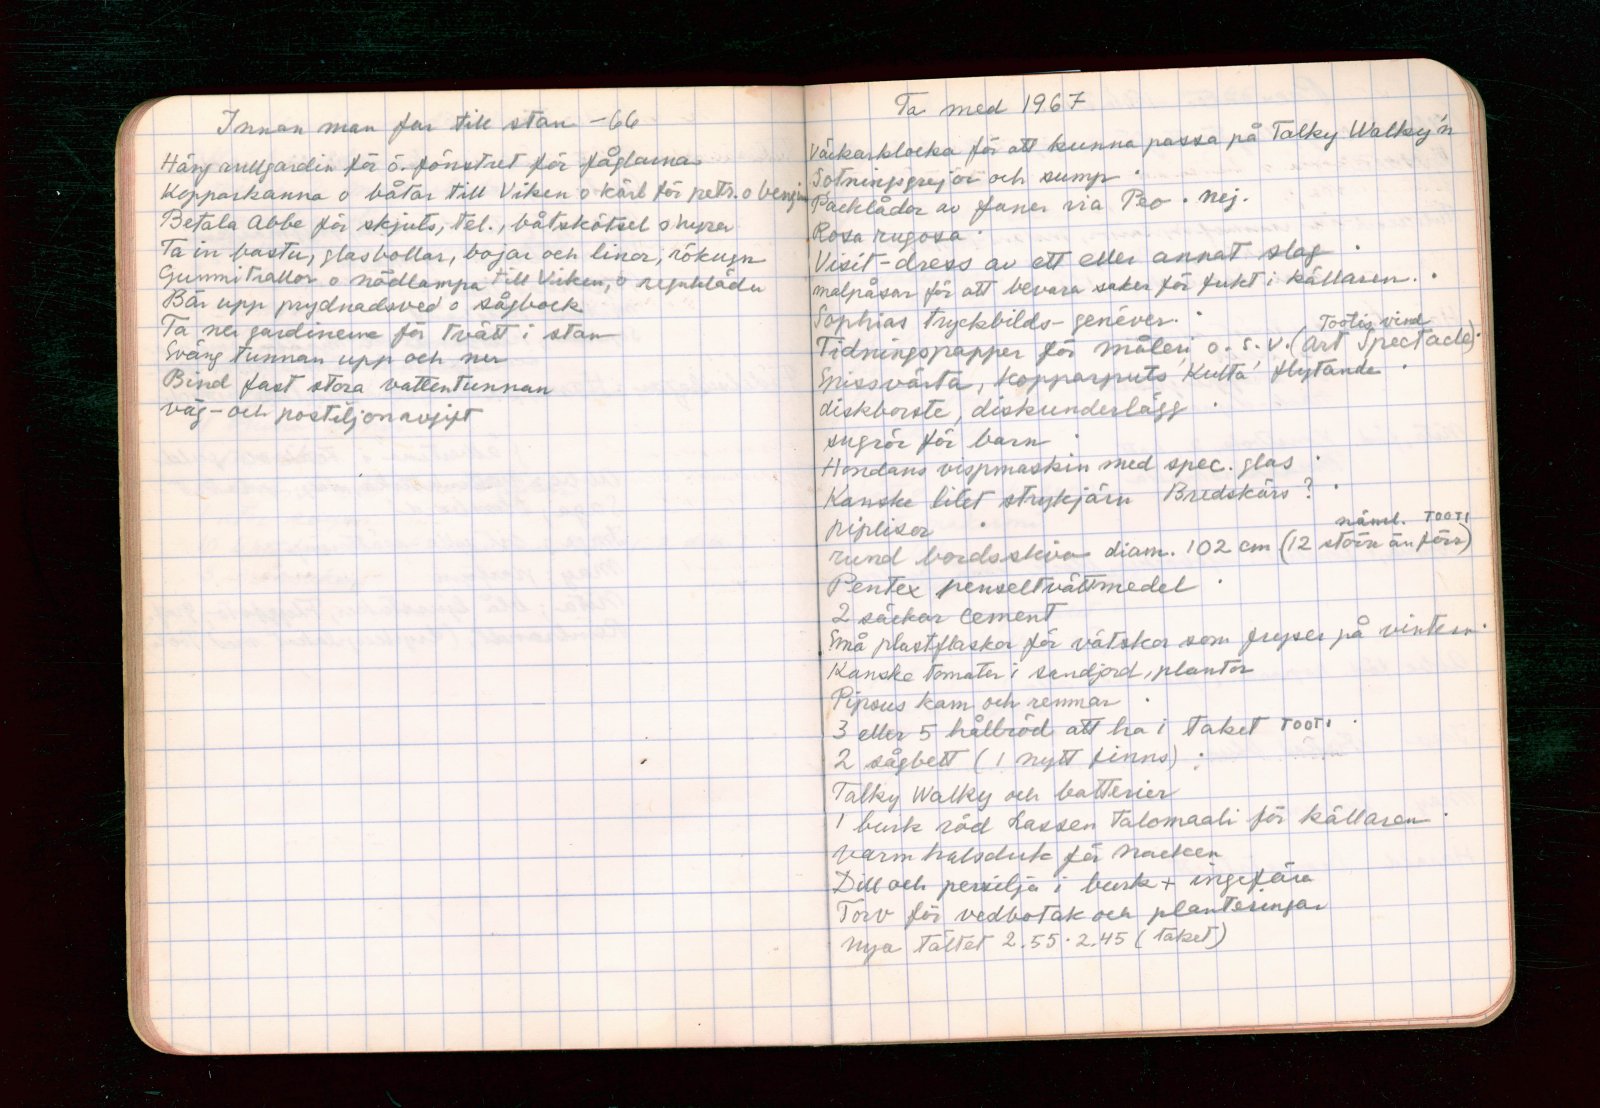 Innan man far till stan -66
Häng rullgardin för ö. fönstret för fåglarna
Kopparkanna o båtar till Viken o kärl för petr. o bensin
Betala Abbe för skjuts, tel., båtskötsel o hyra
Ta in bastu, glasbollar, bojar och linor, rökugn
Gummitrallor o nödlampa till Viken, o regnkläder
Bär upp prydnadsved o sågbock
Ta ner gardinerna för tvätt i stan
Sväng tunnan upp och ner
Bind fast stora vattentunnan
väg- och postiljonavgift
Ta med 1967
Väckarklocka för att kunna passa på Talky Walky'n
Sotningsgrejor och sump ·
Packlådor av faner via Peo · nej.
Rosa rugosa ·
Visit-dress av ett eller annat slag ·
malpåsar för att bevara saker för fukt i källaren. ·
Sophias tryckbilds-genéver. ·
Tootis vind
Tidningspapper för måleri o. s. v. (Art Spectacle) ·
Spissvärta, kopparputs 'Kulta' flytande ·
diskborste, diskunderlägg ·
sugrör för barn ·
Hondans vispmaskin med spec. glas ·
Kanske litet strykjärn Bredskärs? ·
piplisor ·
näml. TOOTI
rund bordsskiva diam. 102 cm (12 större än förr)
Pentex penseltvättmedel ·
2 säckar cement
Små plastflaskor för vätskor som fryser på vintern ·
Kanske tomater i sandjord, plantor
Pipsus kam och remmar ·
3 eller 5 hålbröd att ha i taket TOOTI ·
2 sågbett (1 nytt finns) :
Talky Walky och batterier
1 burk röd Lassen Talomaali för källaren ·
varm halsduk för nacken
Dill och persilja i burk + ingefära
Torv för vedbotak och planteringar
nya tältet 2.55 · 2.45 (taket)